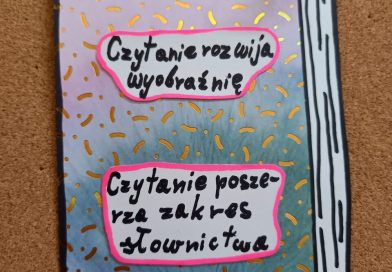 Czytanie rozwija
wyobraźnię
Czytanie posze-
rza zakres
słownictwa